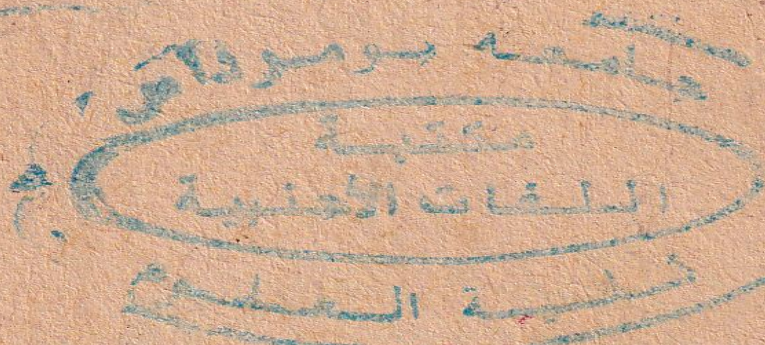 جامعة بومرداس
مكتبة
اللغات الأجنبية
كلية العلوم